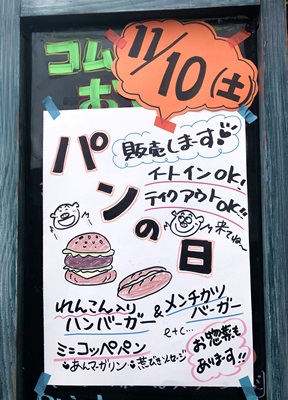 コム
お
11/10(土)
販売します
パンの日
イートインOK!
テイクアウトOK!!
来てね〜
れんこん入り
ハンバーガー
&
メンチカツ
バーガー
etc...
ミニコッペパン
あんマーガリン
荒びきソーセージ
お惣菜も
あります!!